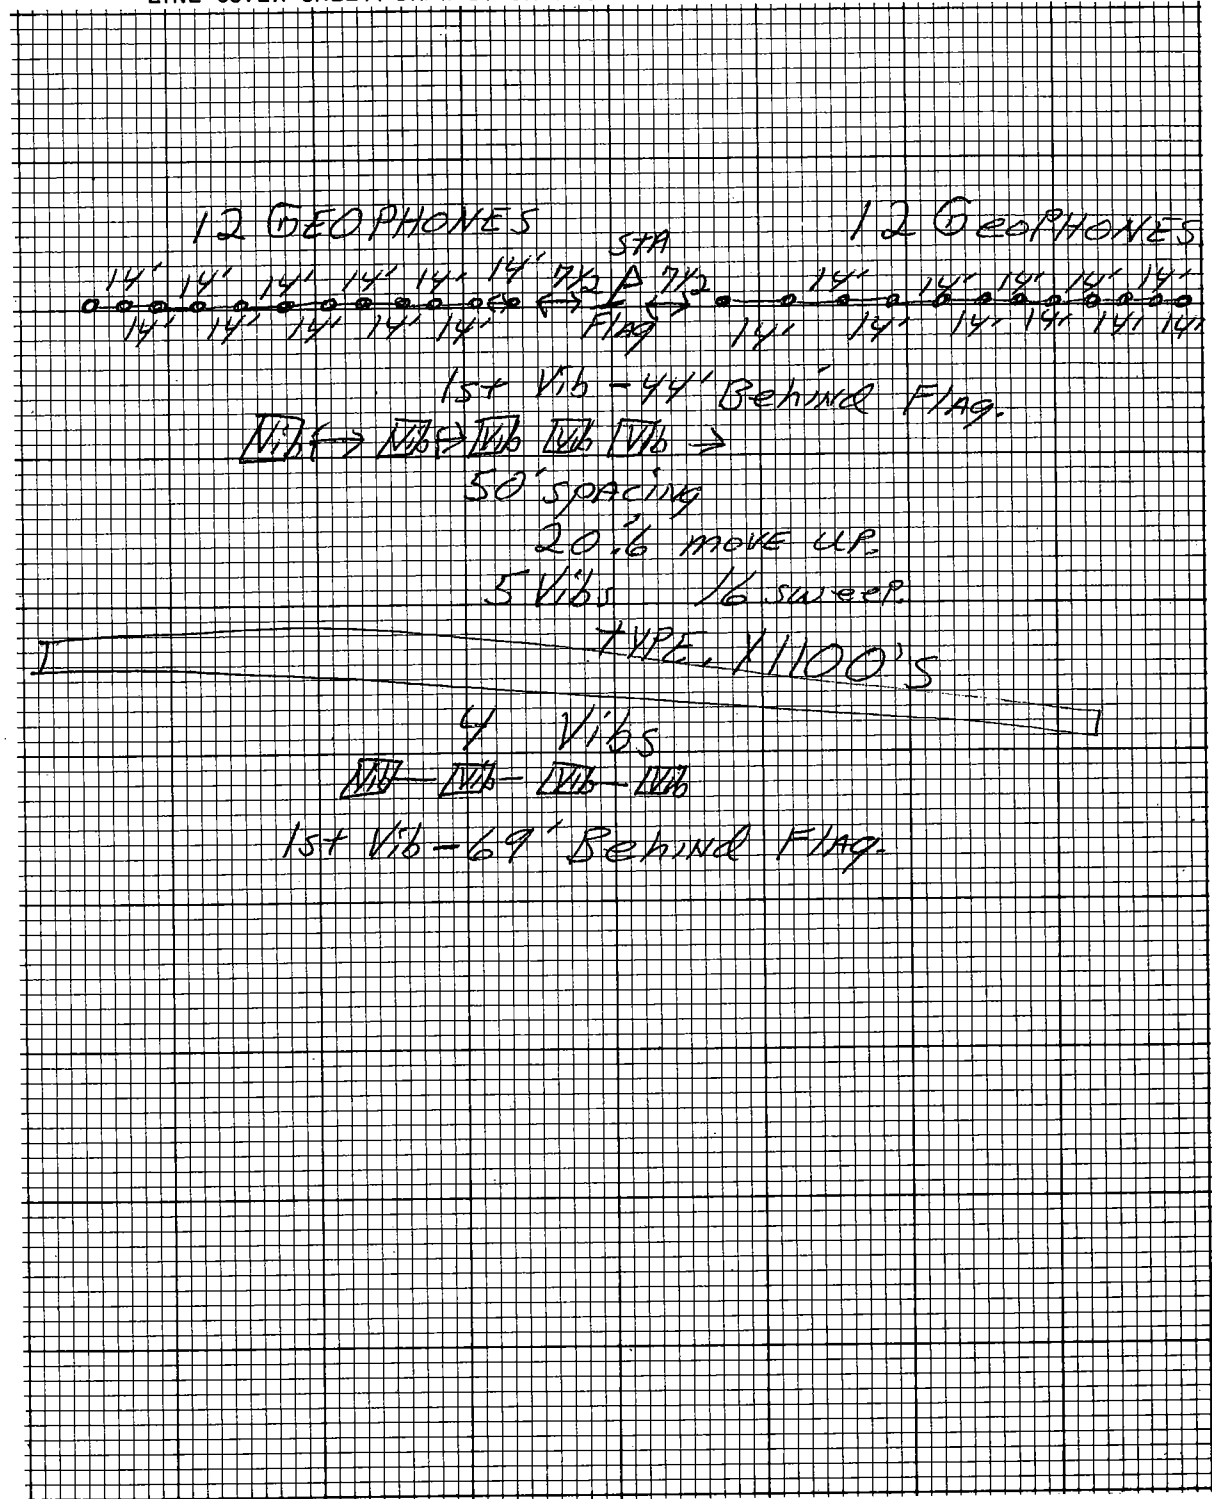 12 GEOPHONES 12 GeoPHONES
STA
14' 14' 14' 14' 14' 14' 7½ 7½ 14' 14' 14' 14' 14'
14' 14' 14' 14' 14' Flag 14' 14' 14' 14' 14' 14'
1st Vib - 44' Behind Flag.
Vib Vib Vib Vib Vib
50' spacing
20.'6 move up.
5 Vibs 16 sweep.
TYPE. Y1100's
4 Vibs
Vib Vib Vib Vib
1st Vib - 69' Behind Flag.